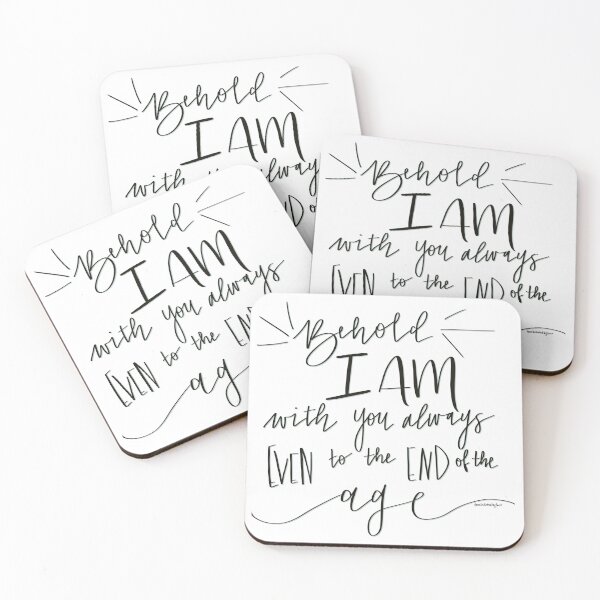 Behold
I AM
with you always
Behold
I AM
with you always
EVEN to the END of the
Behold
I AM
with you always
EVEN to the EN
ag
Behold
I AM
with you always
EVEN to the END of the
age